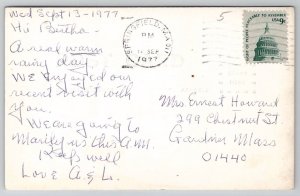 Wed Sept 13-1977
Hi Bertha-
A real warm
rainy day.
We enjoyed our
recent visit with
you.
We are going to
Marilyn's this A.M.
Keep well
Love A & L.
SPRINGFIELD, MA
PM
SEP
1977
TO ASSEMBLE
USA 9c
Mrs Ernest Howard
299 Chestnut St.
Gardner Mass
01440